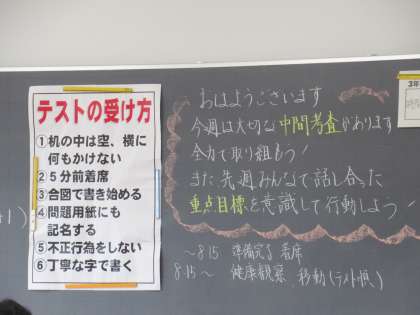 テストの受け方
①机の中は空、横に
何もかけない
②5分前着席
③合図で書き始める
④問題用紙にも
記名する
⑤不正行為をしない
⑥丁寧な字で書く
おはようございます
今週は大切な中間考査があります
全力で取り組もう!
また先週みんなで話し合った
重点目標を意識して行動しよう!
～8:15 準備完了 着席
8:15～ 健康観察 移動(テスト順)
3年